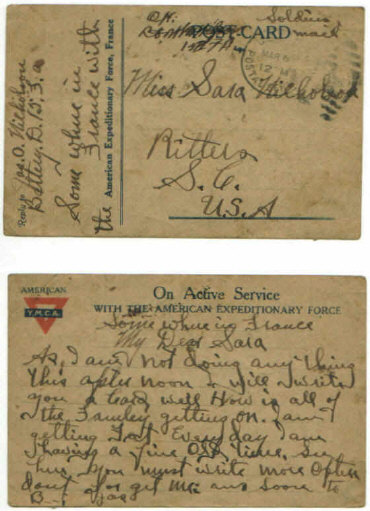 O.K.
Soldier's
mail
POST CARD
MAR
12 M
POSTAL
Miss Sara Nicholson
Ritters
S. C.
U.S.A
Reply to Jas. O. Nicholson
Battery D.
Some where in
France with
the American Expeditionary Force, France
AMERICAN
Y.M.C.A.
On Active Service
WITH THE AMERICAN EXPEDITIONARY FORCE
Some where in France
My Dear Sara
As I am not doing any thing
this after noon I will write
you a Card well How is all of
the Famley getting on. I am
getting Fat Every day I am
Having a fine old time. over
here. you must write more often
dont for get me ans soone to